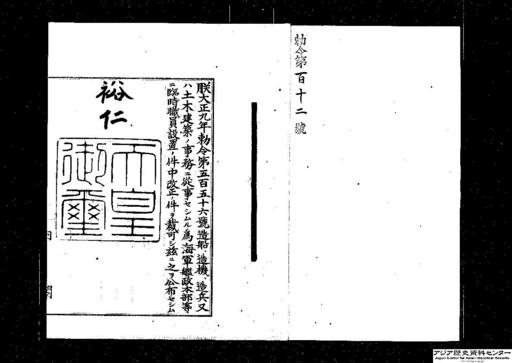 勅令第百十二號
朕大正九年勅令第五百五十六號造船、造機、造兵又
ハ土木建築ノ事務ニ從事セシムル爲海軍艦政本部等
ニ臨時職員設置ノ件中改正ノ件ヲ裁可シ玆ニ之ヲ公布セシム
裕仁
天皇
御璽
内閣
アジア歴史資料センター
Japan Center for Asian Historical Records